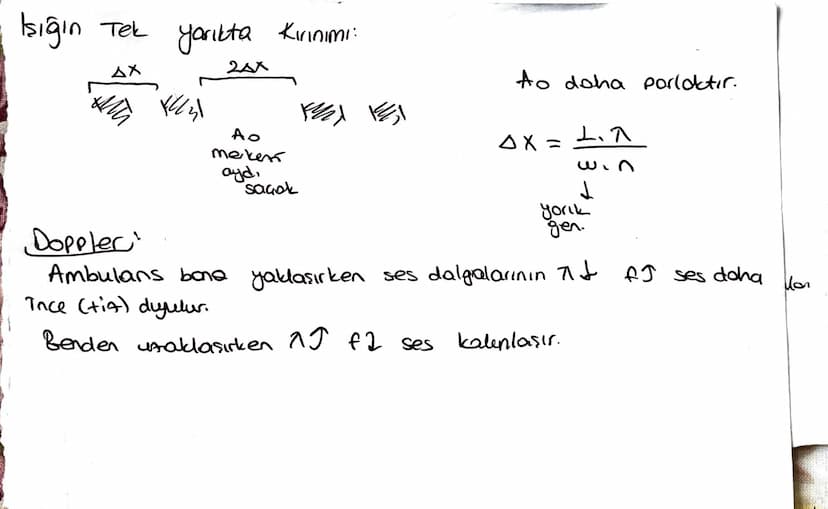 Işığın Tek yarıkta Kırınımı:
Δx 2Δx
A0 daha parlaktır.
A0
merkezi
aydı.
saçak
Δx = L.λ / w.n
↓
yarık
gen.
Doppler:
Ambulans bana yaklaşırken ses dalgalarının λ↓ f↑ ses daha
ince (tiz) duyulur.
Benden uzaklaşırken λ↑ f↓ ses kalınlaşır.